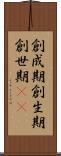 創成期創生期
創世期